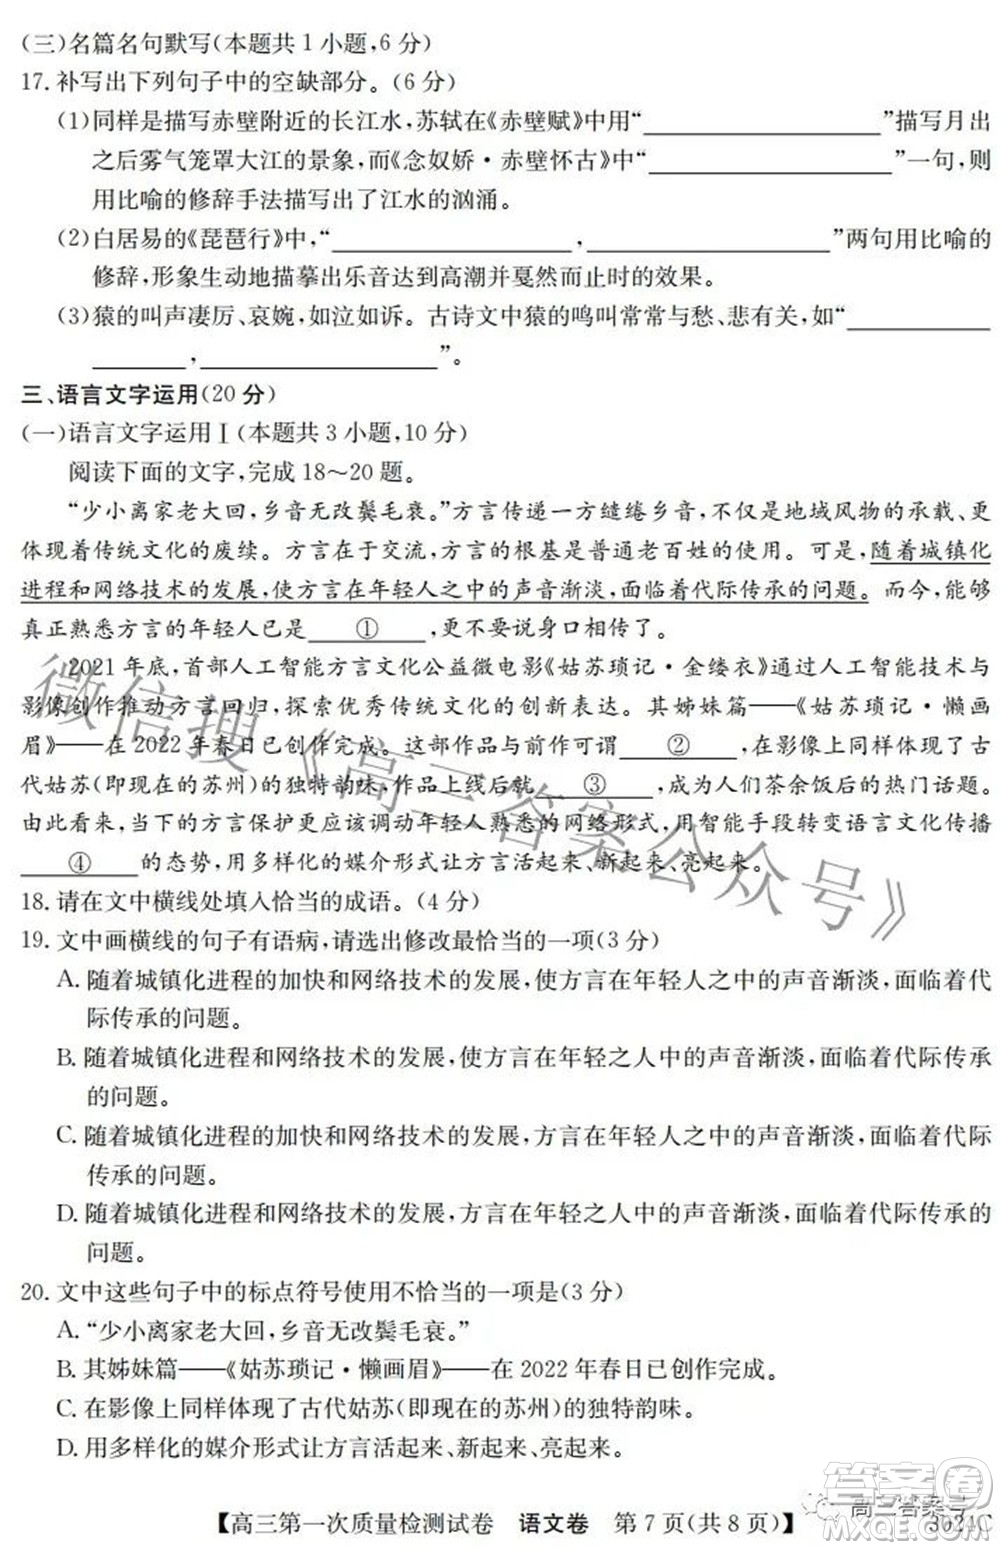 (三)名篇名句默写(本题共1小题,6分)
17.补写出下列句子中的空缺部分。(6分)
(1)同样是描写赤壁附近的长江水,苏轼在《赤壁赋》中用“____________”描写月出
之后雾气笼罩大江的景象,而《念奴娇·赤壁怀古》中“____________”一句,则
用比喻的修辞手法描写出了江水的汹涌。
(2)白居易的《琵琶行》中,“____________,____________”两句用比喻的
修辞,形象生动地描摹出乐音达到高潮并戛然而止时的效果。
(3)猿的叫声凄厉、哀婉,如泣如诉。古诗文中猿的鸣叫常常与愁、悲有关,如“________
________,____________”。
三、语言文字运用(20分)
(一)语言文字运用Ⅰ(本题共3小题,10分)
阅读下面的文字,完成18～20题。
“少小离家老大回,乡音无改鬓毛衰。”方言传递一方缱绻乡音,不仅是地域风物的承载、更
体现着传统文化的赓续。方言在于交流,方言的根基是普通老百姓的使用。可是,随着城镇化
进程和网络技术的发展,使方言在年轻人之中的声音渐淡,面临着代际传承的问题。而今,能够
真正熟悉方言的年轻人已是____①____,更不要说身口相传了。
2021年底,首部人工智能方言文化公益微电影《姑苏琐记·金缕衣》通过人工智能技术与
影像创作推动方言回归,探索优秀传统文化的创新表达。其姊妹篇——《姑苏琐记·懒画
眉》——在2022年春日已创作完成。这部作品与前作可谓____②____,在影像上同样体现了古
代姑苏(即现在的苏州)的独特韵味,作品上线后____③____,成为人们茶余饭后的热门话题。
由此看来,当下的方言保护更应该调动年轻人熟悉的网络形式,用智能手段转变语言文化传播
____④____的态势,用多样化的媒介形式让方言活起来、新起来、亮起来。
18.请在文中横线处填入恰当的成语。(4分)
19.文中画横线的句子有语病,请选出修改最恰当的一项(3分)
A.随着城镇化进程的加快和网络技术的发展,使方言在年轻人之中的声音渐淡,面临着代
际传承的问题。
B.随着城镇化进程和网络技术的发展,使方言在年轻之人中的声音渐淡,面临着代际传承
的问题。
C.随着城镇化进程的加快和网络技术的发展,方言在年轻人之中的声音渐淡,面临着代际
传承的问题。
D.随着城镇化进程和网络技术的发展,方言在年轻之人中的声音渐淡,面临着代际传承的
问题。
20.文中这些句子中的标点符号使用不恰当的一项是(3分)
A.“少小离家老大回,乡音无改鬓毛衰。”
B.其姊妹篇——《姑苏琐记·懒画眉》——在2022年春日已创作完成。
C.在影像上同样体现了古代姑苏(即现在的苏州)的独特韵味。
D.用多样化的媒介形式让方言活起来、新起来、亮起来。
【高三第一次质量检测试卷 语文卷 第7页(共8页)】 3024C
微信搜《高三答案公众号》
高三答案号
答案圈
MXQE.COM